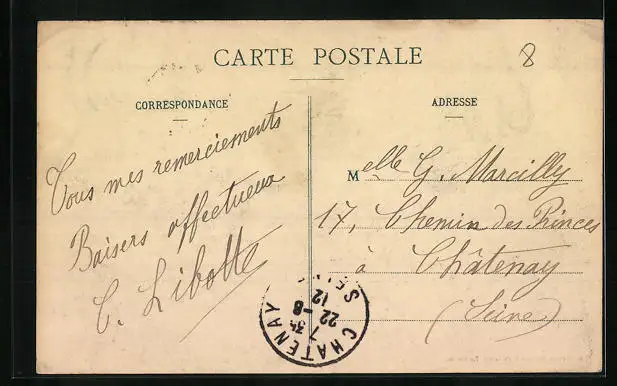 CARTE POSTALE
8
CORRESPONDANCE
Tous mes remerciements
Baisers affectueux
C. Libotte
ADRESSE
Melle G. Marcilly
17, Chemin des Princes
à Châtenay
(Seine)
CHATENAY
7 35
22 -8
12
SEINE